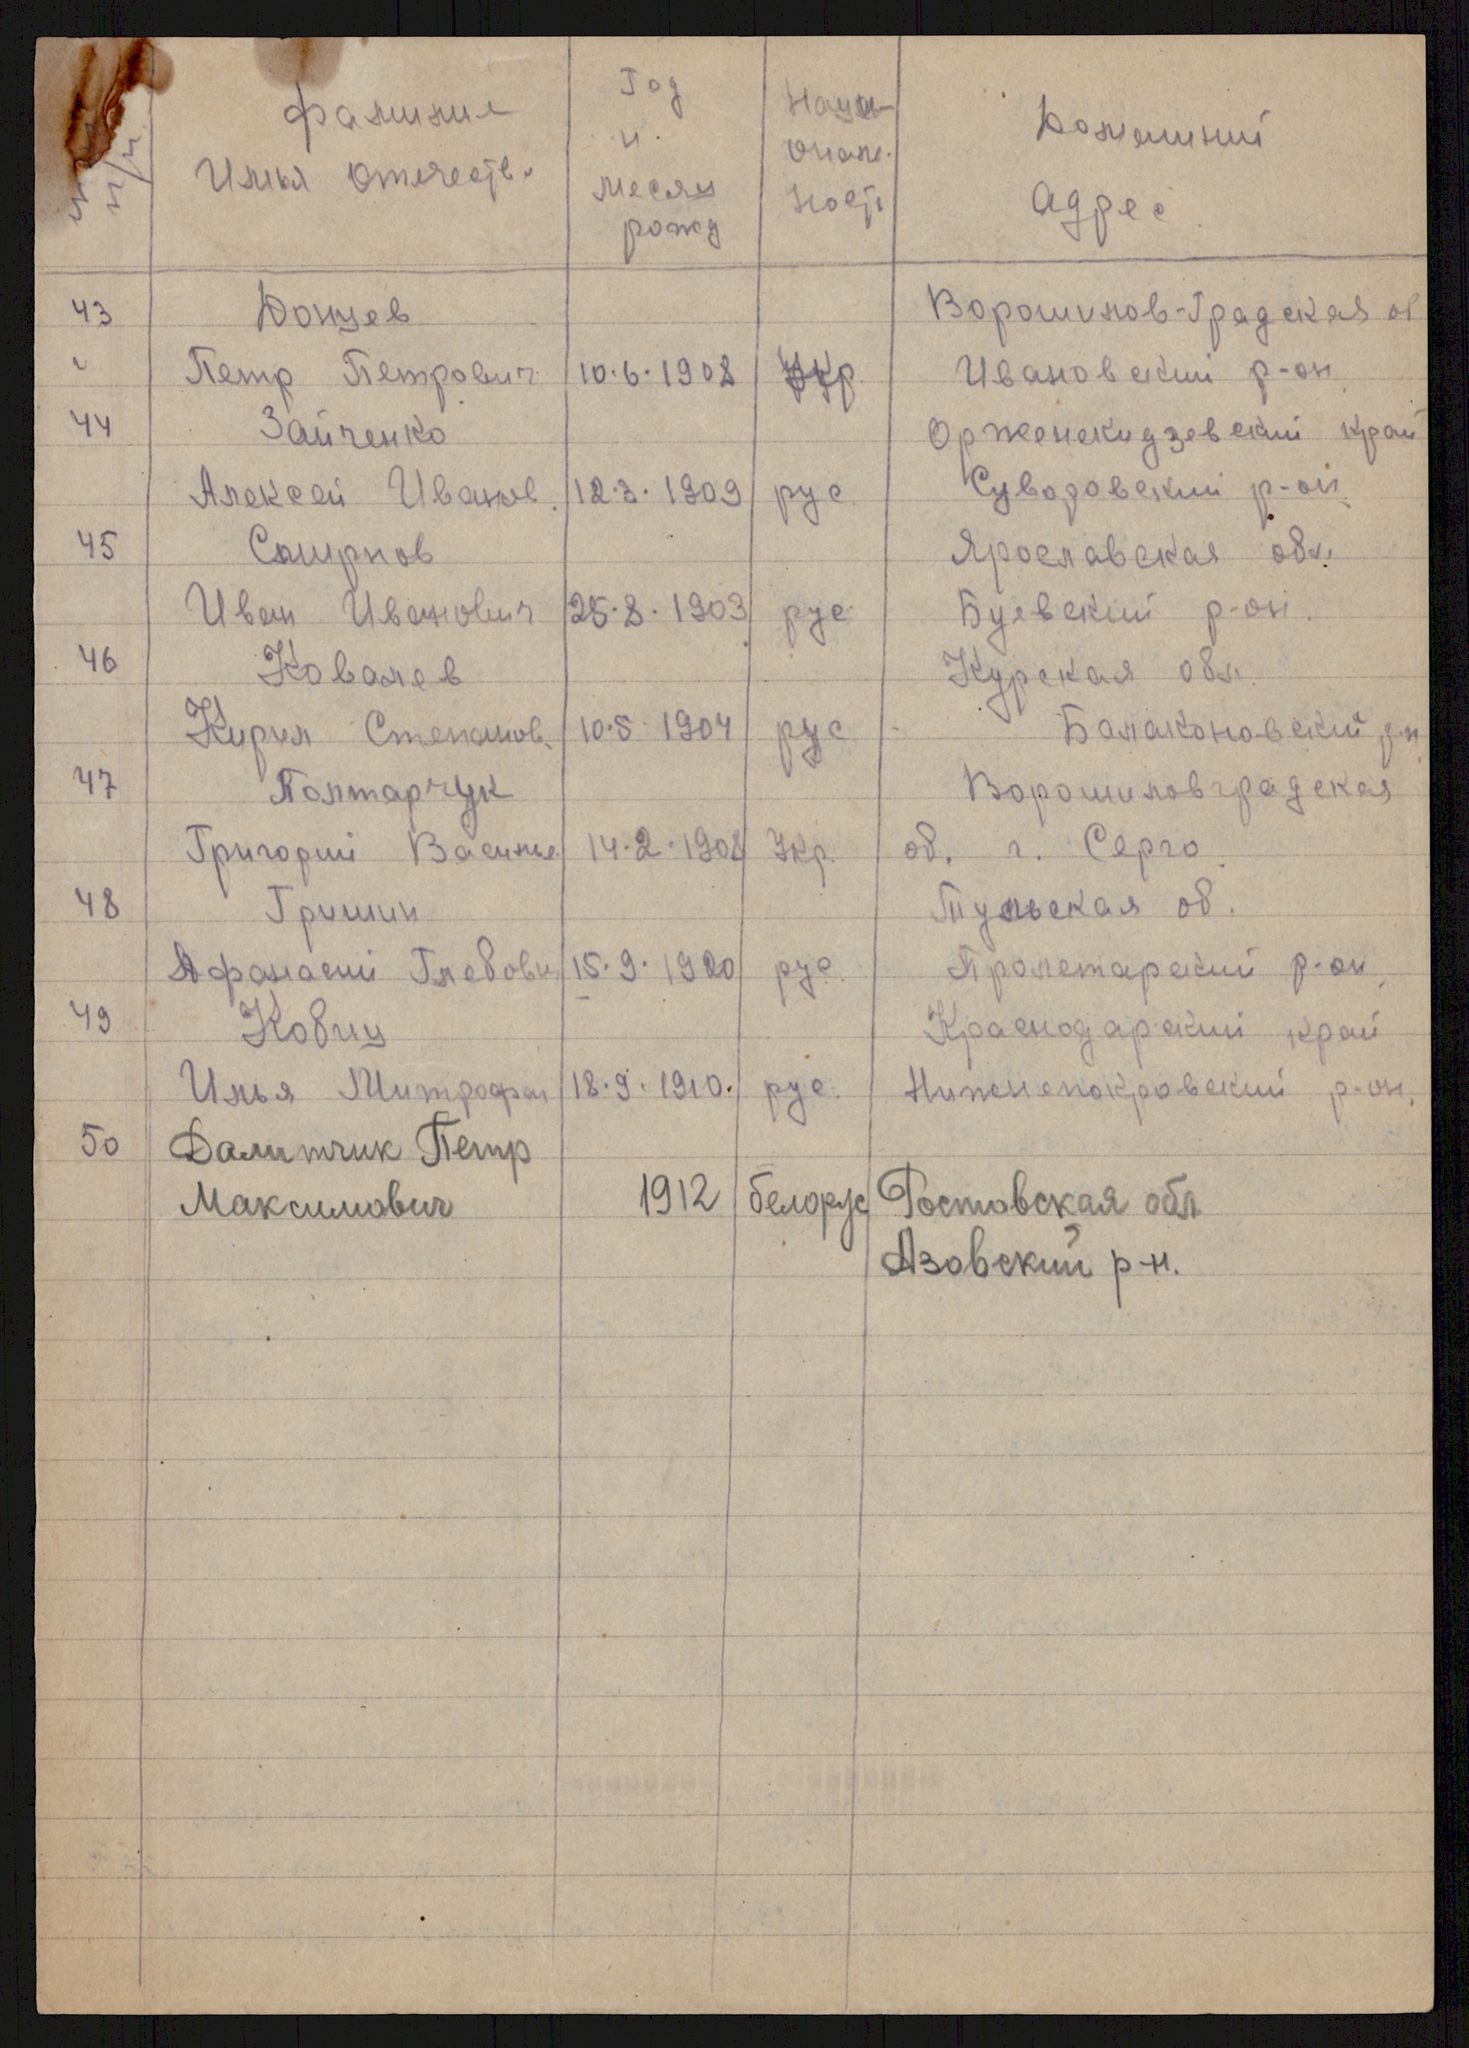 № п/п Фамилия Имья Отчество Год и месяц рожд Наци-ональ. ность Домашний Адрес
43 Донцев Ворошилов-Градская об
Петр Петрович 10.6.1908 Укр. Ивановский р-он
44 Зайченко Орженекидзевский край
Алексей Иванов. 12.3.1909 рус Суводовский р-он.
45 Смирнов Ярославская обл.
Иван Иванович 25.8.1903 рус Буевский р-он.
46 Ковалев Курская обл.
Кирил Степанов. 10.5.1904 рус Балаконовский р-н
47 Полтарчук Ворошиловградская
Григорий Василье 14.2.1908 Укр. об. г. Серго.
48 Гришин Тульская об.
Афанасий Глебови 15.9.1920 рус. Пролетарский р-он.
49 Кобиц Краснодарский край
Илья Митрофан 18.9.1910. рус. Нижнепокровский р-он.
50 Далитчик Петр
Максимович 1912 белорус Ростовская обл
Азовский р-н.